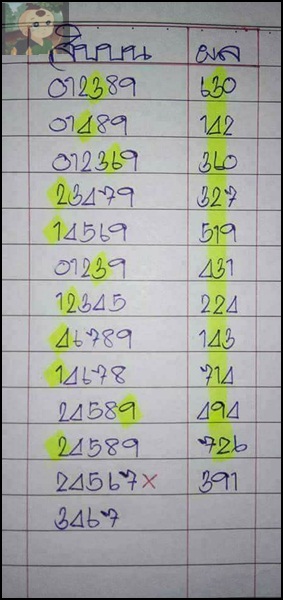 สิบบน ผล
012389 630
01489 142
012369 360
23479 327
14569 519
01239 431
12345 224
46789 143
14678 714
24589 494
24589 726
24567× 391
3467